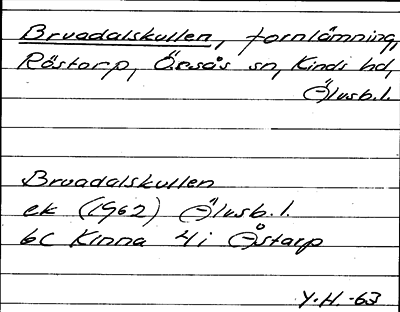 Bruadalskullen, fornlämning,
Röstorp, Örsås sn, Kinds hd,
Älvsb.l.
Bruadalskullen
ek (1962) Älvsb.l.
6C Kinna 4i Östarp
Y.H.-63